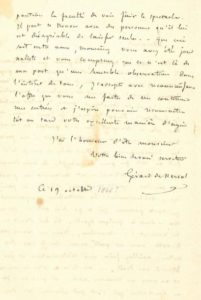 pourtion la faculté de voir finir le spectacle.
Il peut se trouver avec des personnes qu'il lui
est désagréable de laisser seules. Que ceci
soit entre nous, monsieur, vous avez été journaliste
et vous comprenez que ce n'est là de
ma part qu'une humble observation dans
l'intérêt de tous, j'accepte avec reconnaissance
l'offre que vous me faites de me continuer
mes entrées et j'espère pouvoir reconnaître
tôt ou tard votre excellente manière d'agir.
J'ai l'honneur d'être monsieur
Votre bien dévoué serviteur
Gérard de Nerval
Ce 19 octobre